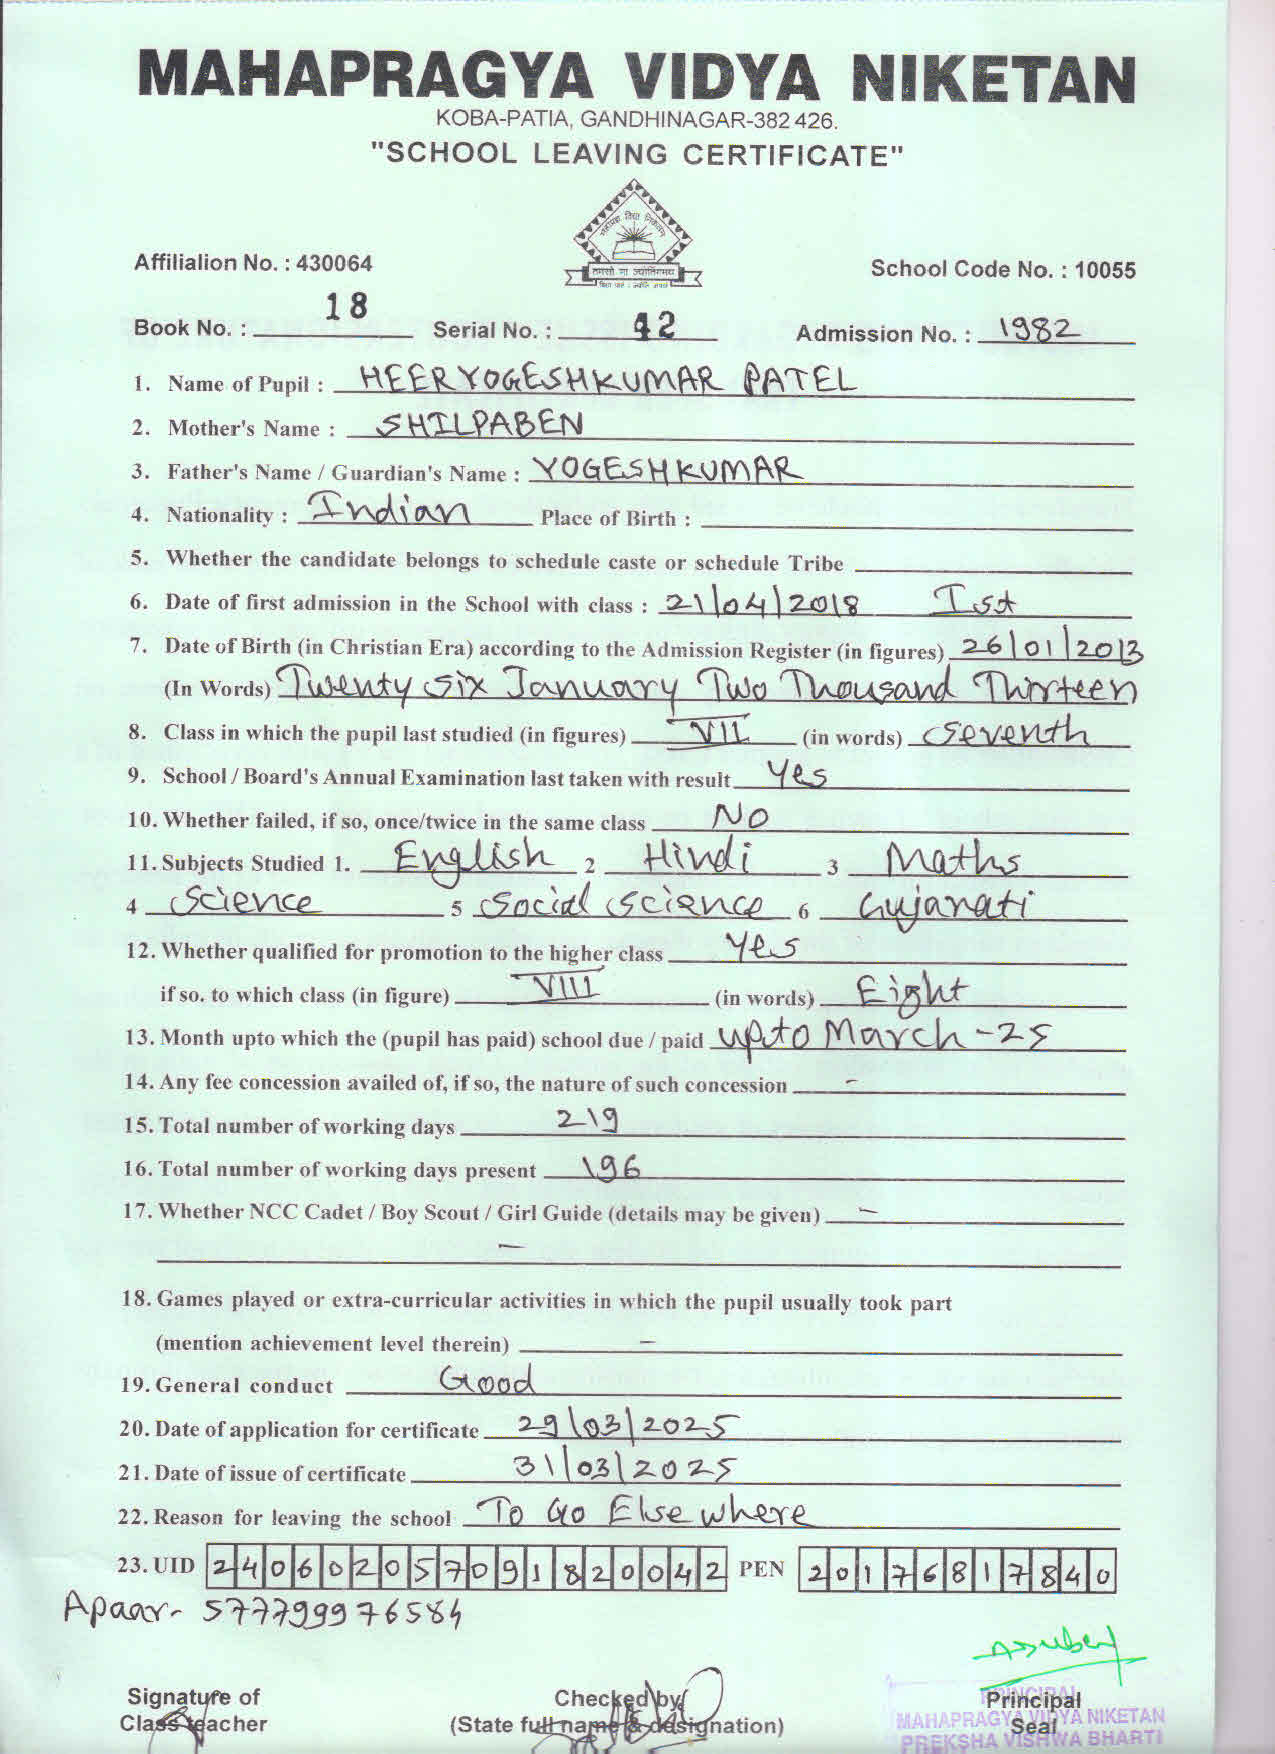 MAHAPRAGYA VIDYA NIKETAN
KOBA-PATIA, GANDHINAGAR-382 426.
"SCHOOL LEAVING CERTIFICATE"
महाप्रज्ञ विद्या निकेतन
तमसो मा ज्योतिर्गमय
Affilialion No. : 430064
School Code No. : 10055
Book No. : 18 Serial No. : 42 Admission No. : 1982
1. Name of Pupil : HEER YOGESHKUMAR PATEL
2. Mother's Name : SHILPABEN
3. Father's Name / Guardian's Name : YOGESHKUMAR
4. Nationality : Indian Place of Birth :
5. Whether the candidate belongs to schedule caste or schedule Tribe
6. Date of first admission in the School with class : 21/04/2018 Ist
7. Date of Birth (in Christian Era) according to the Admission Register (in figures) 26/01/2013
(In Words) Twenty six January Two Thousand Thirteen
8. Class in which the pupil last studied (in figures) VII (in words) Seventh
9. School / Board's Annual Examination last taken with result Yes
10. Whether failed, if so, once/twice in the same class NO
11. Subjects Studied 1. English 2 Hindi 3 Maths
4 Science 5 Social Science 6 Gujarati
12. Whether qualified for promotion to the higher class Yes
if so. to which class (in figure) VIII (in words) Eight
13. Month upto which the (pupil has paid) school due / paid upto March-25
14. Any fee concession availed of, if so, the nature of such concession -
15. Total number of working days 219
16. Total number of working days present 196
17. Whether NCC Cadet / Boy Scout / Girl Guide (details may be given) -
-
18. Games played or extra-curricular activities in which the pupil usually took part
(mention achievement level therein) -
19. General conduct Good
20. Date of application for certificate 29/03/2025
21. Date of issue of certificate 31/03/2025
22. Reason for leaving the school To Go Else where
23. UID 240602057091820042 PEN 20176817840
Apaar- 577799976584
Signature of
Class teacher
Checked by
(State full name & designation)
Principal
Seal
PRINCIPAL
MAHAPRAGYA VIDYA NIKETAN
PREKSHA VISHWA BHARTI